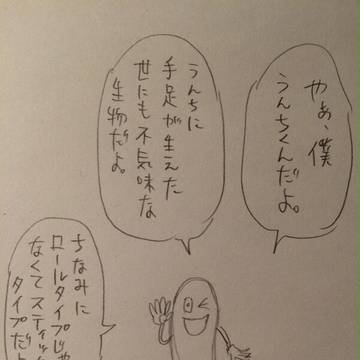 やぁ、僕
うんちくんだよ。
うんちに
手足が生えた
世にも不気味な
生物だよ。
ちなみに
ロールタイプじゃ
なくてスティック
タイプだよ